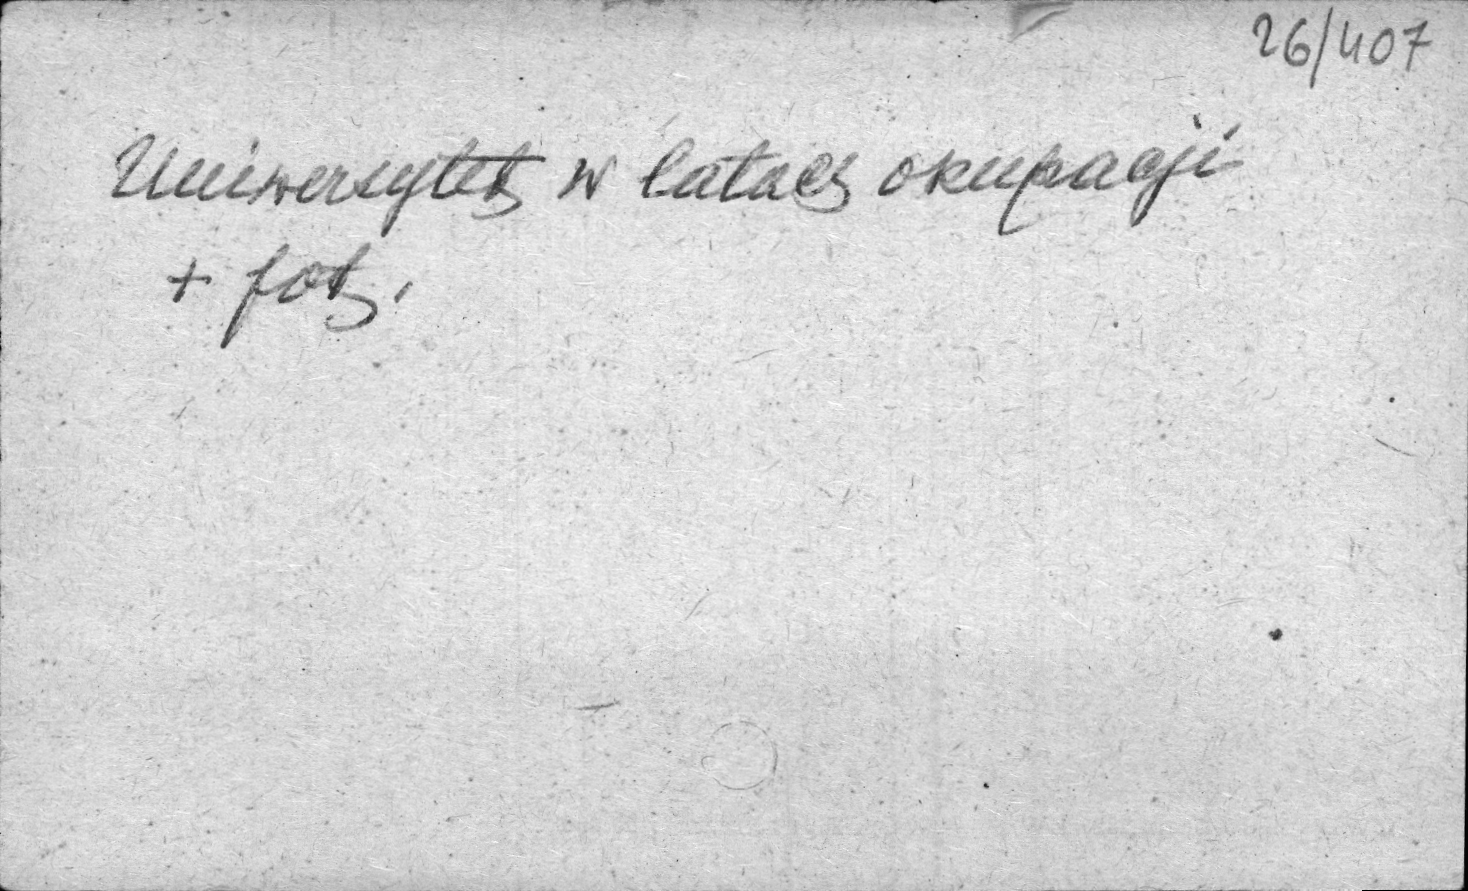 26/407
Uniwersytet w latach okupacji
+ fot.